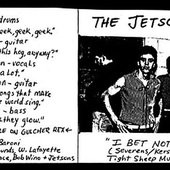 drums
geek, geek, geek."
guitar
this hog, anyway?"
n - vocals
a lot."
n - guitar
songs that make
world sing."
- bass
they glow."
ON GULCHER REX
Baroni
W. Lafayette
Bob Wino + Jetsons
THE JETSO
"I BET NOT
C Severens/Kers
Tight Sheep Mu